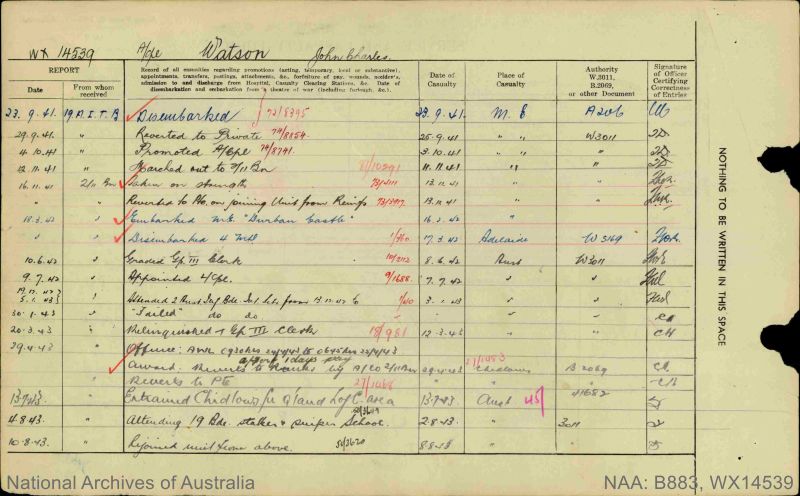 WX 14539 A/Cpl Watson John Charles.
REPORT
Record of all casualties regarding promotions (acting, temporary, local or substantive), appointments, transfers, postings, attachments, &c., forfeiture of pay, wounds, accidents, admission to and discharge from Hospital, Casualty Clearing Stations, &c. Date of disembarkation and embarkation from theatre of war (including furlough, &c.).
Date of Casualty
Place of Casualty
Authority W.3011, B.2069, or other Document
Signature of Officer Certifying Correctness of Entries
Date
From whom received
23.9.41. 19 A.I.T.B Disembarked 72/8395 23.9.41. M.E A206
29.9.41. " Reverted to Private 74/8854 25.9.41 " W3011
4.10.41 " Promoted A/Cpl 74/8741 3.10.41 " "
12.11.41 " Marched out to 2/11 Bn 11.11.41 " "
16.11.41 2/11 Bn Taken on strength 73/4111 13.11.41
" " Reverted to Pte. on joining Unit from Reinfs 13.11.41
18.3.42 " Embarked M.E. "Durban Castle" 16.2.42 "
" " Disembarked 4 M.D. 1/360 17.3.42 Adelaide W3169
10.6.42 " Graded Gp. III Clerk 8.6.42 Aust W3011
9.7.42 " Appointed L/Cpl. 9/1688 7.7.42 " "
19.12.42
5.1.43 " Attended 2 Aust Inf Bde from 13.12.42 to 3.1.43 " "
30.1.43 " "Failed" do do " "
20.3.43 " Relinquished Gp III Clerk 18/981 12.3.43 " "
29.4.43 Offence: AWL 0930hrs 20/4/43 to 0645hrs 22/4/43
Award. Reverts to Ranks by 2/11 Bn 29.4.43 Chidlows B2069
27/1453
Reverts to Pte 27/1468 " " "
13.7.43 " Entrained Chidlows for Q'land L of C area 13.7.43 Aust 45 41682
4.8.43 " Attending 19 Bde. stalker & sniper School. 2.8.43 " 3011
10.8.43 " Rejoined unit from above. 8.8.43 " "
NOTHING TO BE WRITTEN IN THIS SPACE
National Archives of Australia
NAA: B883, WX14539